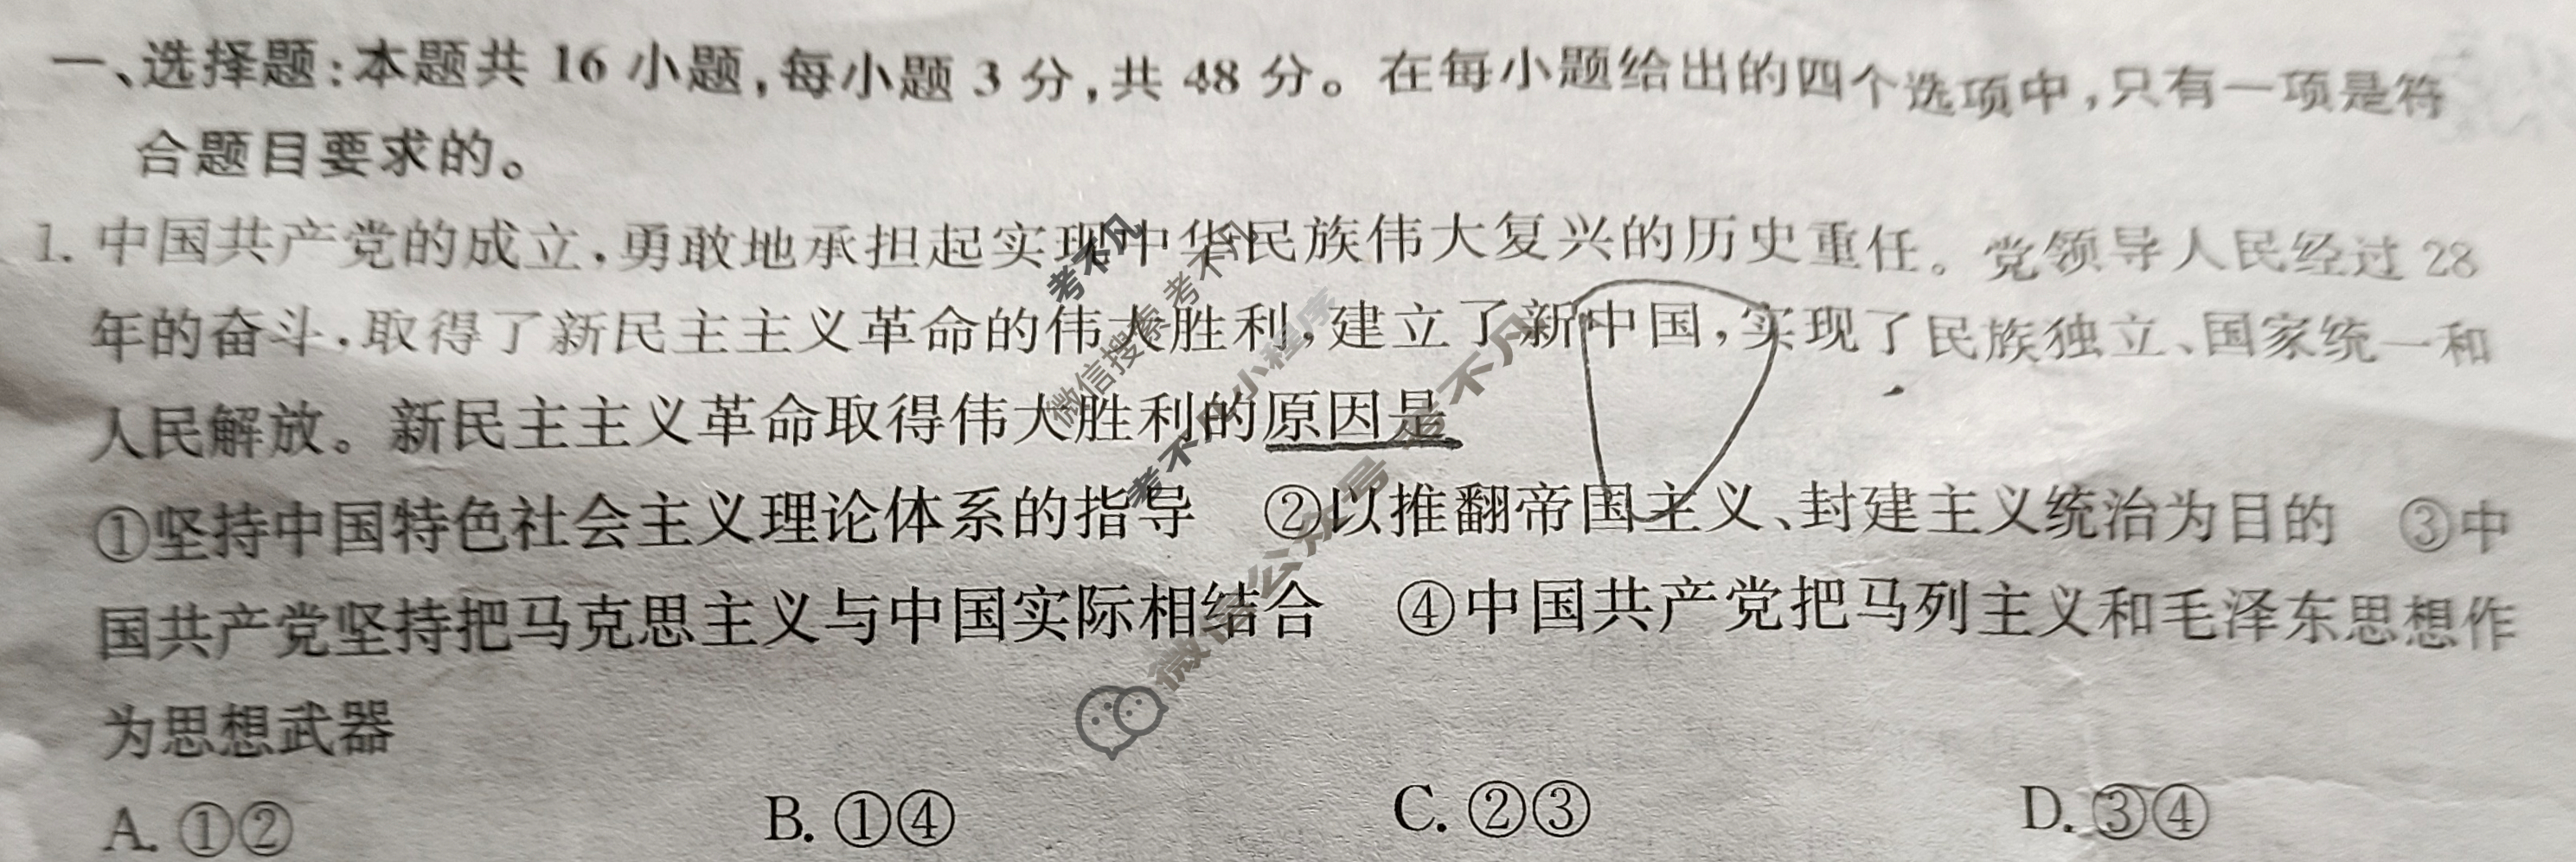 一、选择题:本题共 16 小题,每小题 3 分,共 48 分。在每小题给出的四个选项中,只有一项是符
合题目要求的。
1. 中国共产党的成立,勇敢地承担起实现中华民族伟大复兴的历史重任。党领导人民经过 28
年的奋斗,取得了新民主主义革命的伟大胜利,建立了新中国,实现了民族独立、国家统一和
人民解放。新民主主义革命取得伟大胜利的原因是
①坚持中国特色社会主义理论体系的指导 ②以推翻帝国主义、封建主义统治为目的 ③中
国共产党坚持把马克思主义与中国实际相结合 ④中国共产党把马列主义和毛泽东思想作
为思想武器
A. ①② B. ①④ C. ②③ D. ③④
考不凡
考不凡
微信搜索
考不凡小程序
微信公众号 考不凡